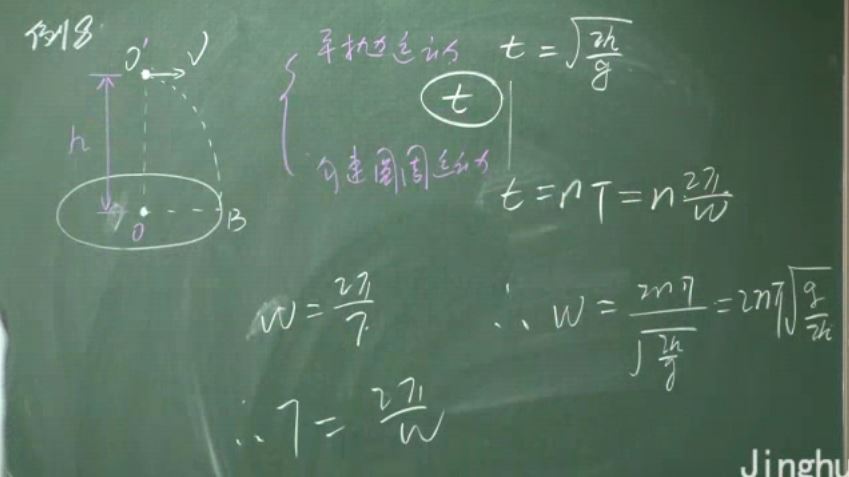 例8
O' V
h
O B
平抛运动 t = √(2h/g)
t
匀速圆周运动
t = nT = n 2π/W
W = 2π/T
∴ W = 2nπ/√(2h/g) = 2nπ√(g/2h)
∴ T = 2π/W
Jinghu